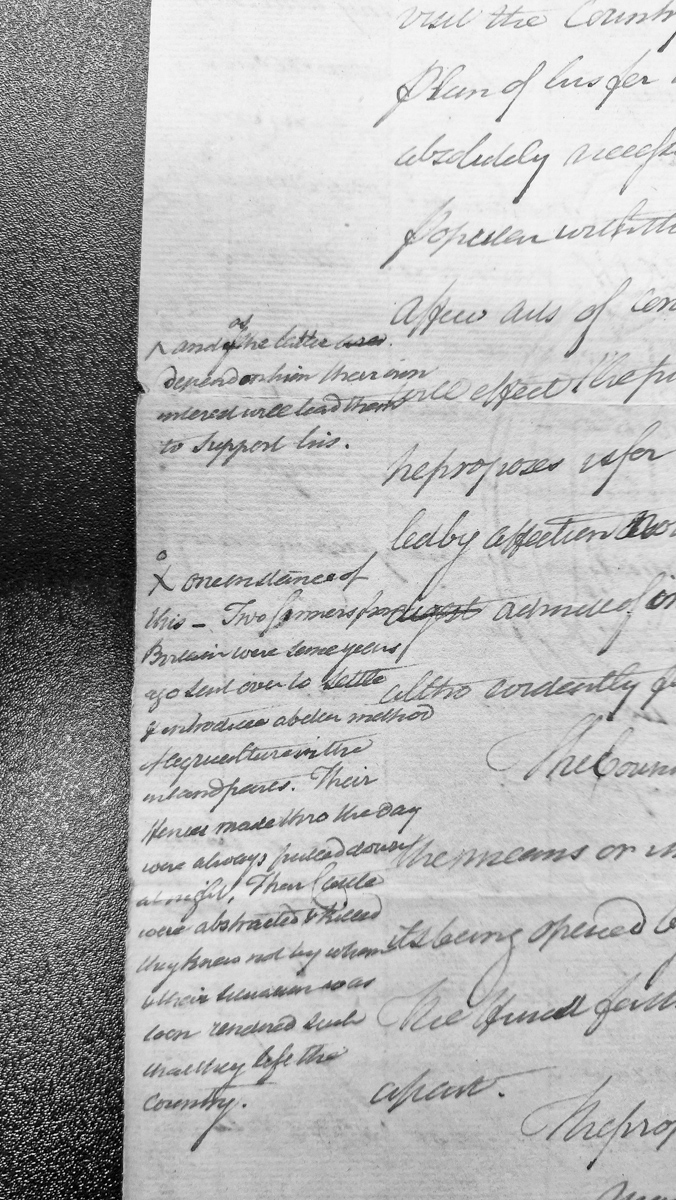 visit the Country
Plan of his for
absolutely necess
Popular with th
a few acts of con
will effect The pu
he proposes is for
led by affection
admitted in
altho evidently f
The Coun
the means or
its being opened b
The Fund for
apart.
The prop
^ and as the latter
depend on him their own
interest will lead them
to Support his.
o
X one instance of
this – Two farmers from
Britain were some years
ago sent over to settle
& introduce a better method
of agriculture in the
inland parts. Their
Fences made thro the day
were always pulled down
at night, Their Cattle
were abstracted & killed
they knew not by whom
& their situation was
soon rendered such
that they left the
Country.